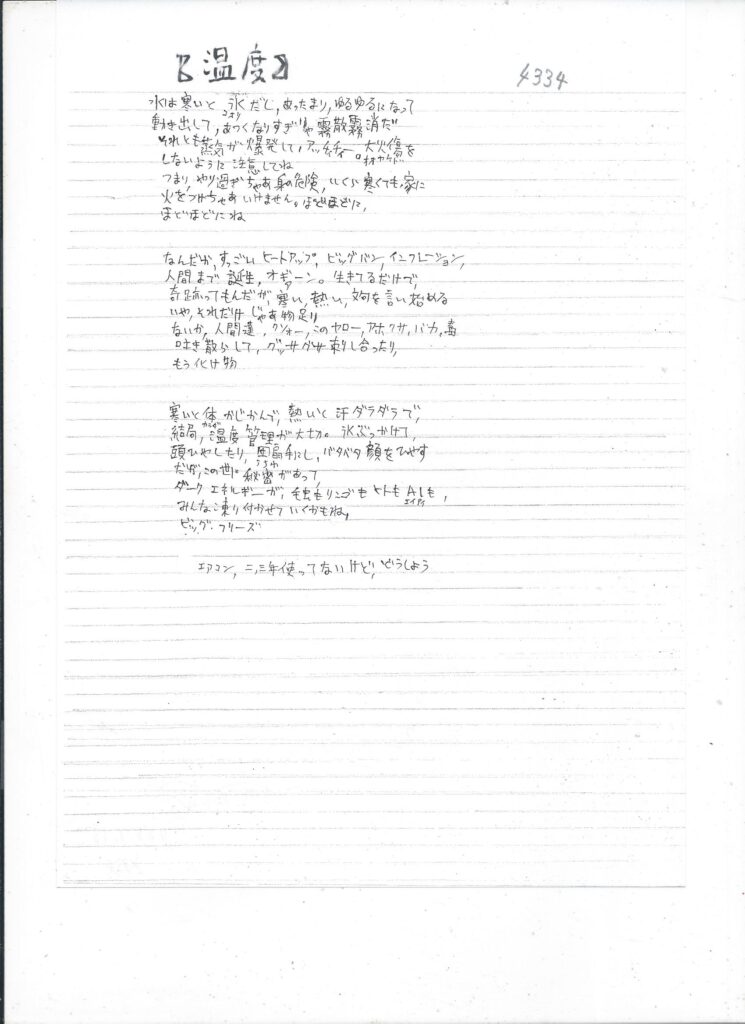 【温度】
4334
水は寒いと氷だし,あったまり,ゆるゆるになって
こおり
動き出して,あつくなりすぎりゃ霧散霧消だ,
それとも蒸気が爆発して,アッチッチィー。大火傷を
オオヤケド
しないように注意してね
つまり,やり過ぎちゃあ身の危険,いくら寒くても,家に
火をつけちゃあいけません。ほどほどに,
ほどほどにね
なんだか,すっごいヒートアップ,ビッグバン,インフレーション,
人間まで誕生,オギァーン。生きてるだけで,
奇跡ってもんだが,寒い,熱い,文句を言い始める
いや,それだけじゃあ物足り
ないか,人間達,クソォー,このヤロー,アホクサ,バカ,毒
吐き散らして,グッサグサ刺し合ったり,
もう化け物
寒いと体かじかんで,熱いと汗ダラダラで,
からだ
結局,温度管理が大切。氷ぶっかけて,
頭ひやしたり,団扇手にし,バタバタ顔をひやす
うちわ
だが,この世に秘密があって,
ダークエネルギーが,毛虫もリンゴもヒトもAIも,
エイアイ
みんな凍り付かせていくかもね,
ビッグ・フリーズ
エアコン,二,三年使ってないけど,どうしよう